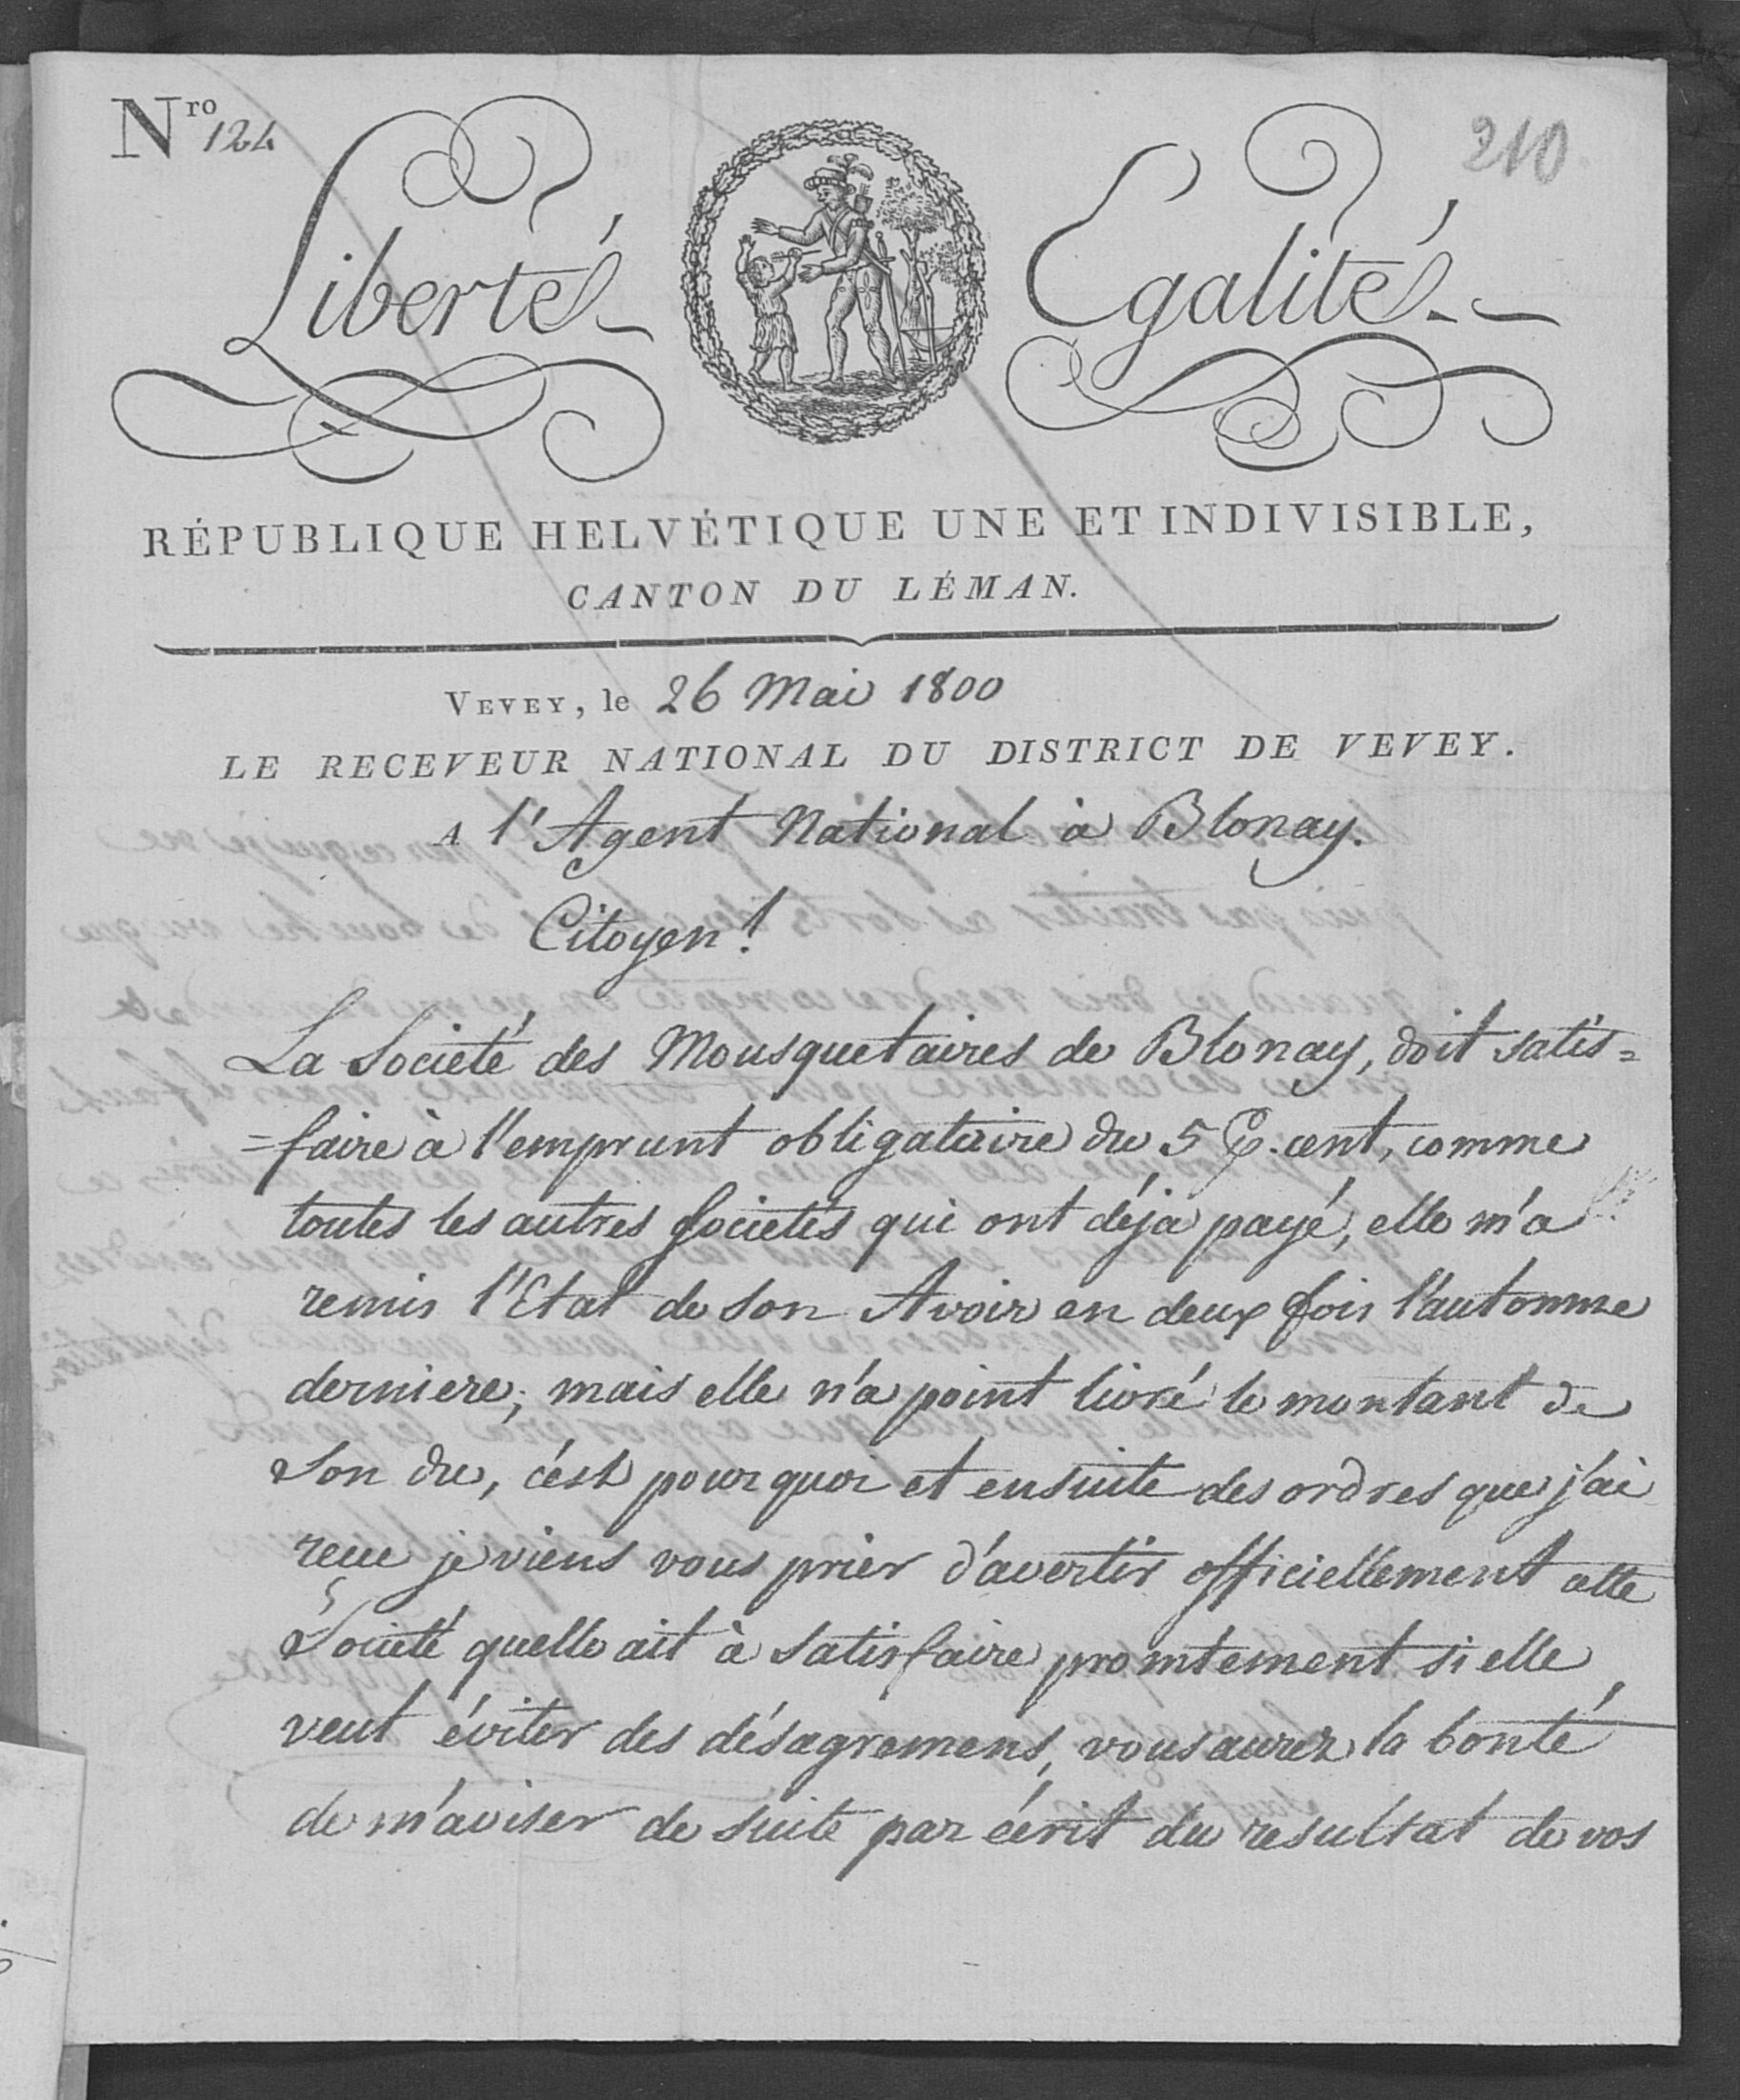 Nro 124
210
Liberté Egalité
RÉPUBLIQUE HELVÉTIQUE UNE ET INDIVISIBLE,
CANTON DU LÉMAN.
VEVEY, le 26 Mai 1800
LE RECEVEUR NATIONAL DU DISTRICT DE VEVEY.
A l'Agent National à Blonay.
Citoyen!
La Société des Mousquetaires de Blonay, doit satis=
=faire à l'emprunt obligataire du 5 P. cent, comme
toutes les autres Societés qui ont déja payé, elle m'a
remis l'Etat de son Avoir en deux fois l'automne
derniere; mais elle n'a point livré le montant de
Son du, c'est pourquoi et ensuite des ordres que j'ai
reçu je viens vous prier d'avertir officiellement cette
Societé quelle ait à satisfaire promtement si elle
veut éviter des désagremens, vous aurez la bonté
de m'aviser de suite par écrit du resultat de vos